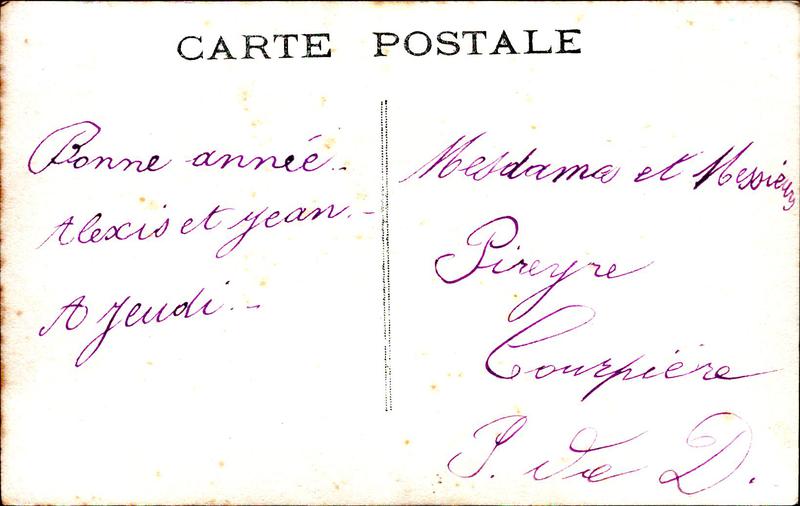 CARTE POSTALE
Bonne année.
Alexis et Jean.
A Jeudi.
Mesdames et Messieurs
Pireyre
Courpière
P. de D.